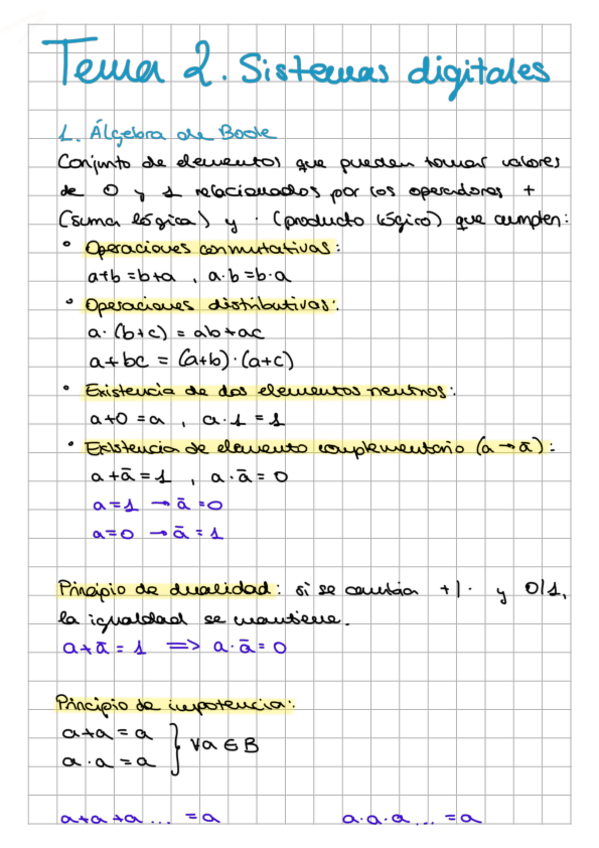 Tema 2. Sistemas digitales
1. Álgebra de Boole
Conjunto de elementos que pueden tomar valores
de 0 y 1 relacionados por los operadores +
(suma lógica) y · (producto lógico) que cumplen:
• Operaciones conmutativas:
a+b=b+a , a·b=b·a
• Operaciones distributivas:
a·(b+c) = ab+ac
a+bc = (a+b)·(a+c)
• Existencia de dos elementos neutros:
a+0=a , a·1=1
• Existencia de elemento complementario (a→ā):
a+ā=1 , a·ā=0
a=1 → ā=0
a=0 → ā=1
Principio de dualidad: si se cambian +/· y 0/1,
la igualdad se mantiene.
a+ā=1 => a·ā=0
Principio de impotencia:
a+a=a
a·a=a } ∀a∈B
a+a+a... =a a·a·a... =a